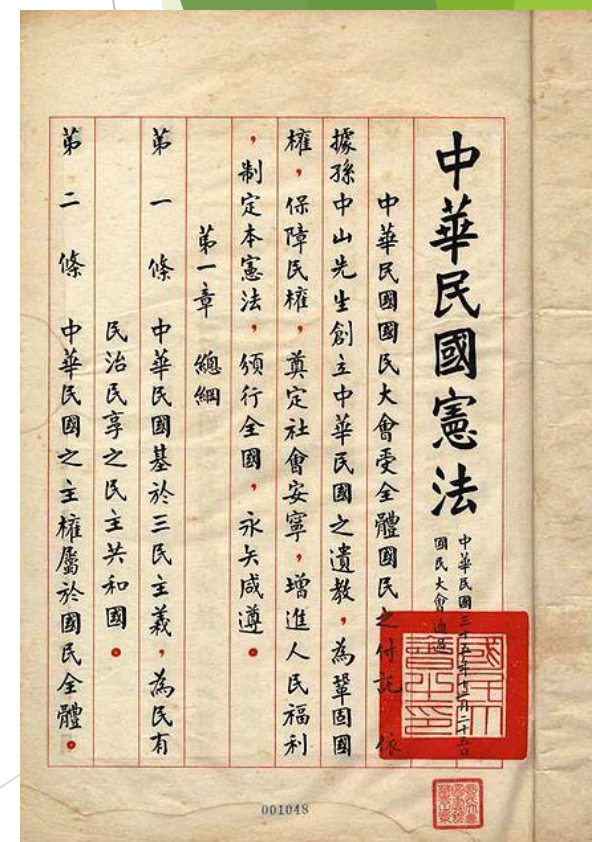 中華民國憲法
中華民國三十五年十二月二十五日
國民大會通過
中華民國國民大會受全體國民之付託 依
據孫中山先生創立中華民國之遺教,為鞏固國
權,保障民權,奠定社會安寧,增進人民福利
,制定本憲法,頒行全國,永矢咸遵。
第一章 總綱
第一條 中華民國基於三民主義,為民有
民治民享之民主共和國。
第二條 中華民國之主權屬於國民全體。
國民大會之印
001048